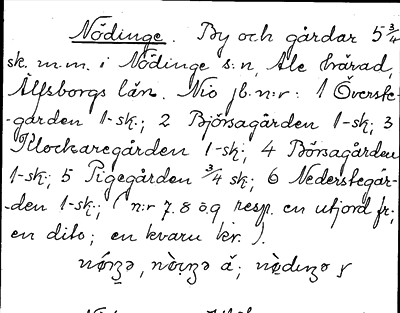 Nödinge. By och gårdar 5 3/4
sk. m.m. i Nödinge s:n, Ale härad,
Älfsborgs län. Nio jb.n:r: 1 Överste-
-gården 1-sk.; 2 Björsagården 1-sk; 3
Klockaregården 1-sk; 4 Börsagården
1-sk; 5 Pigegården 3/4 sk; 6 Nederstegår-
-den 1-sk; (n:r 7.8 o.9 resp. en utjord fr;
en dito; en kvarn kr.).